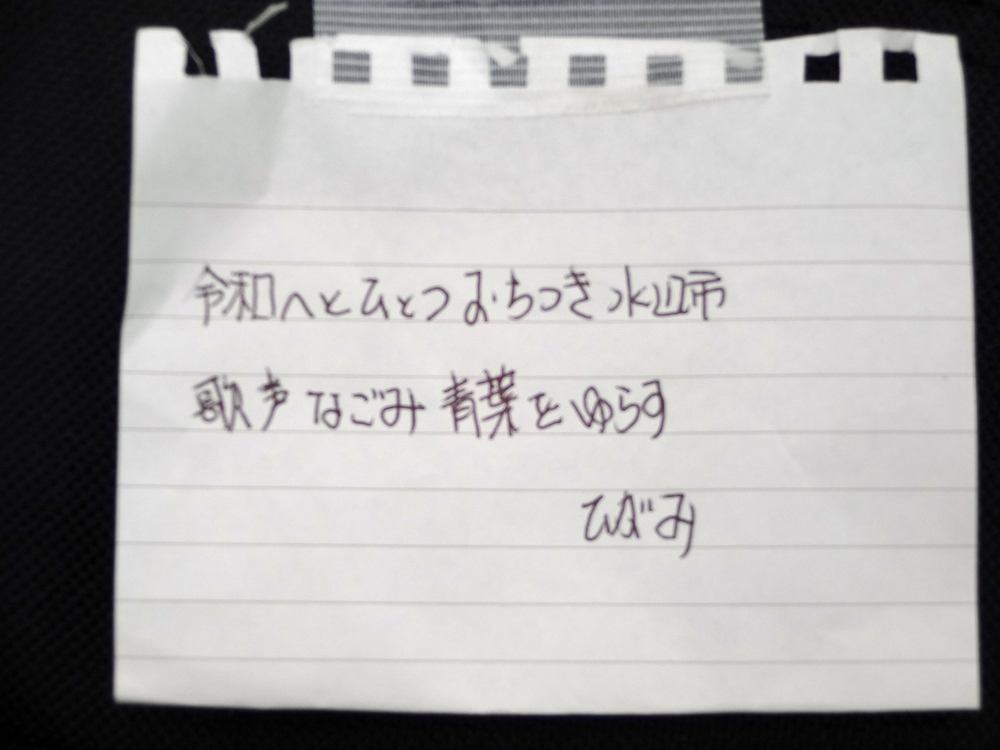 令和へとひとつおちつき水辺市
歌声なごみ青葉をゆらす
ひがみ